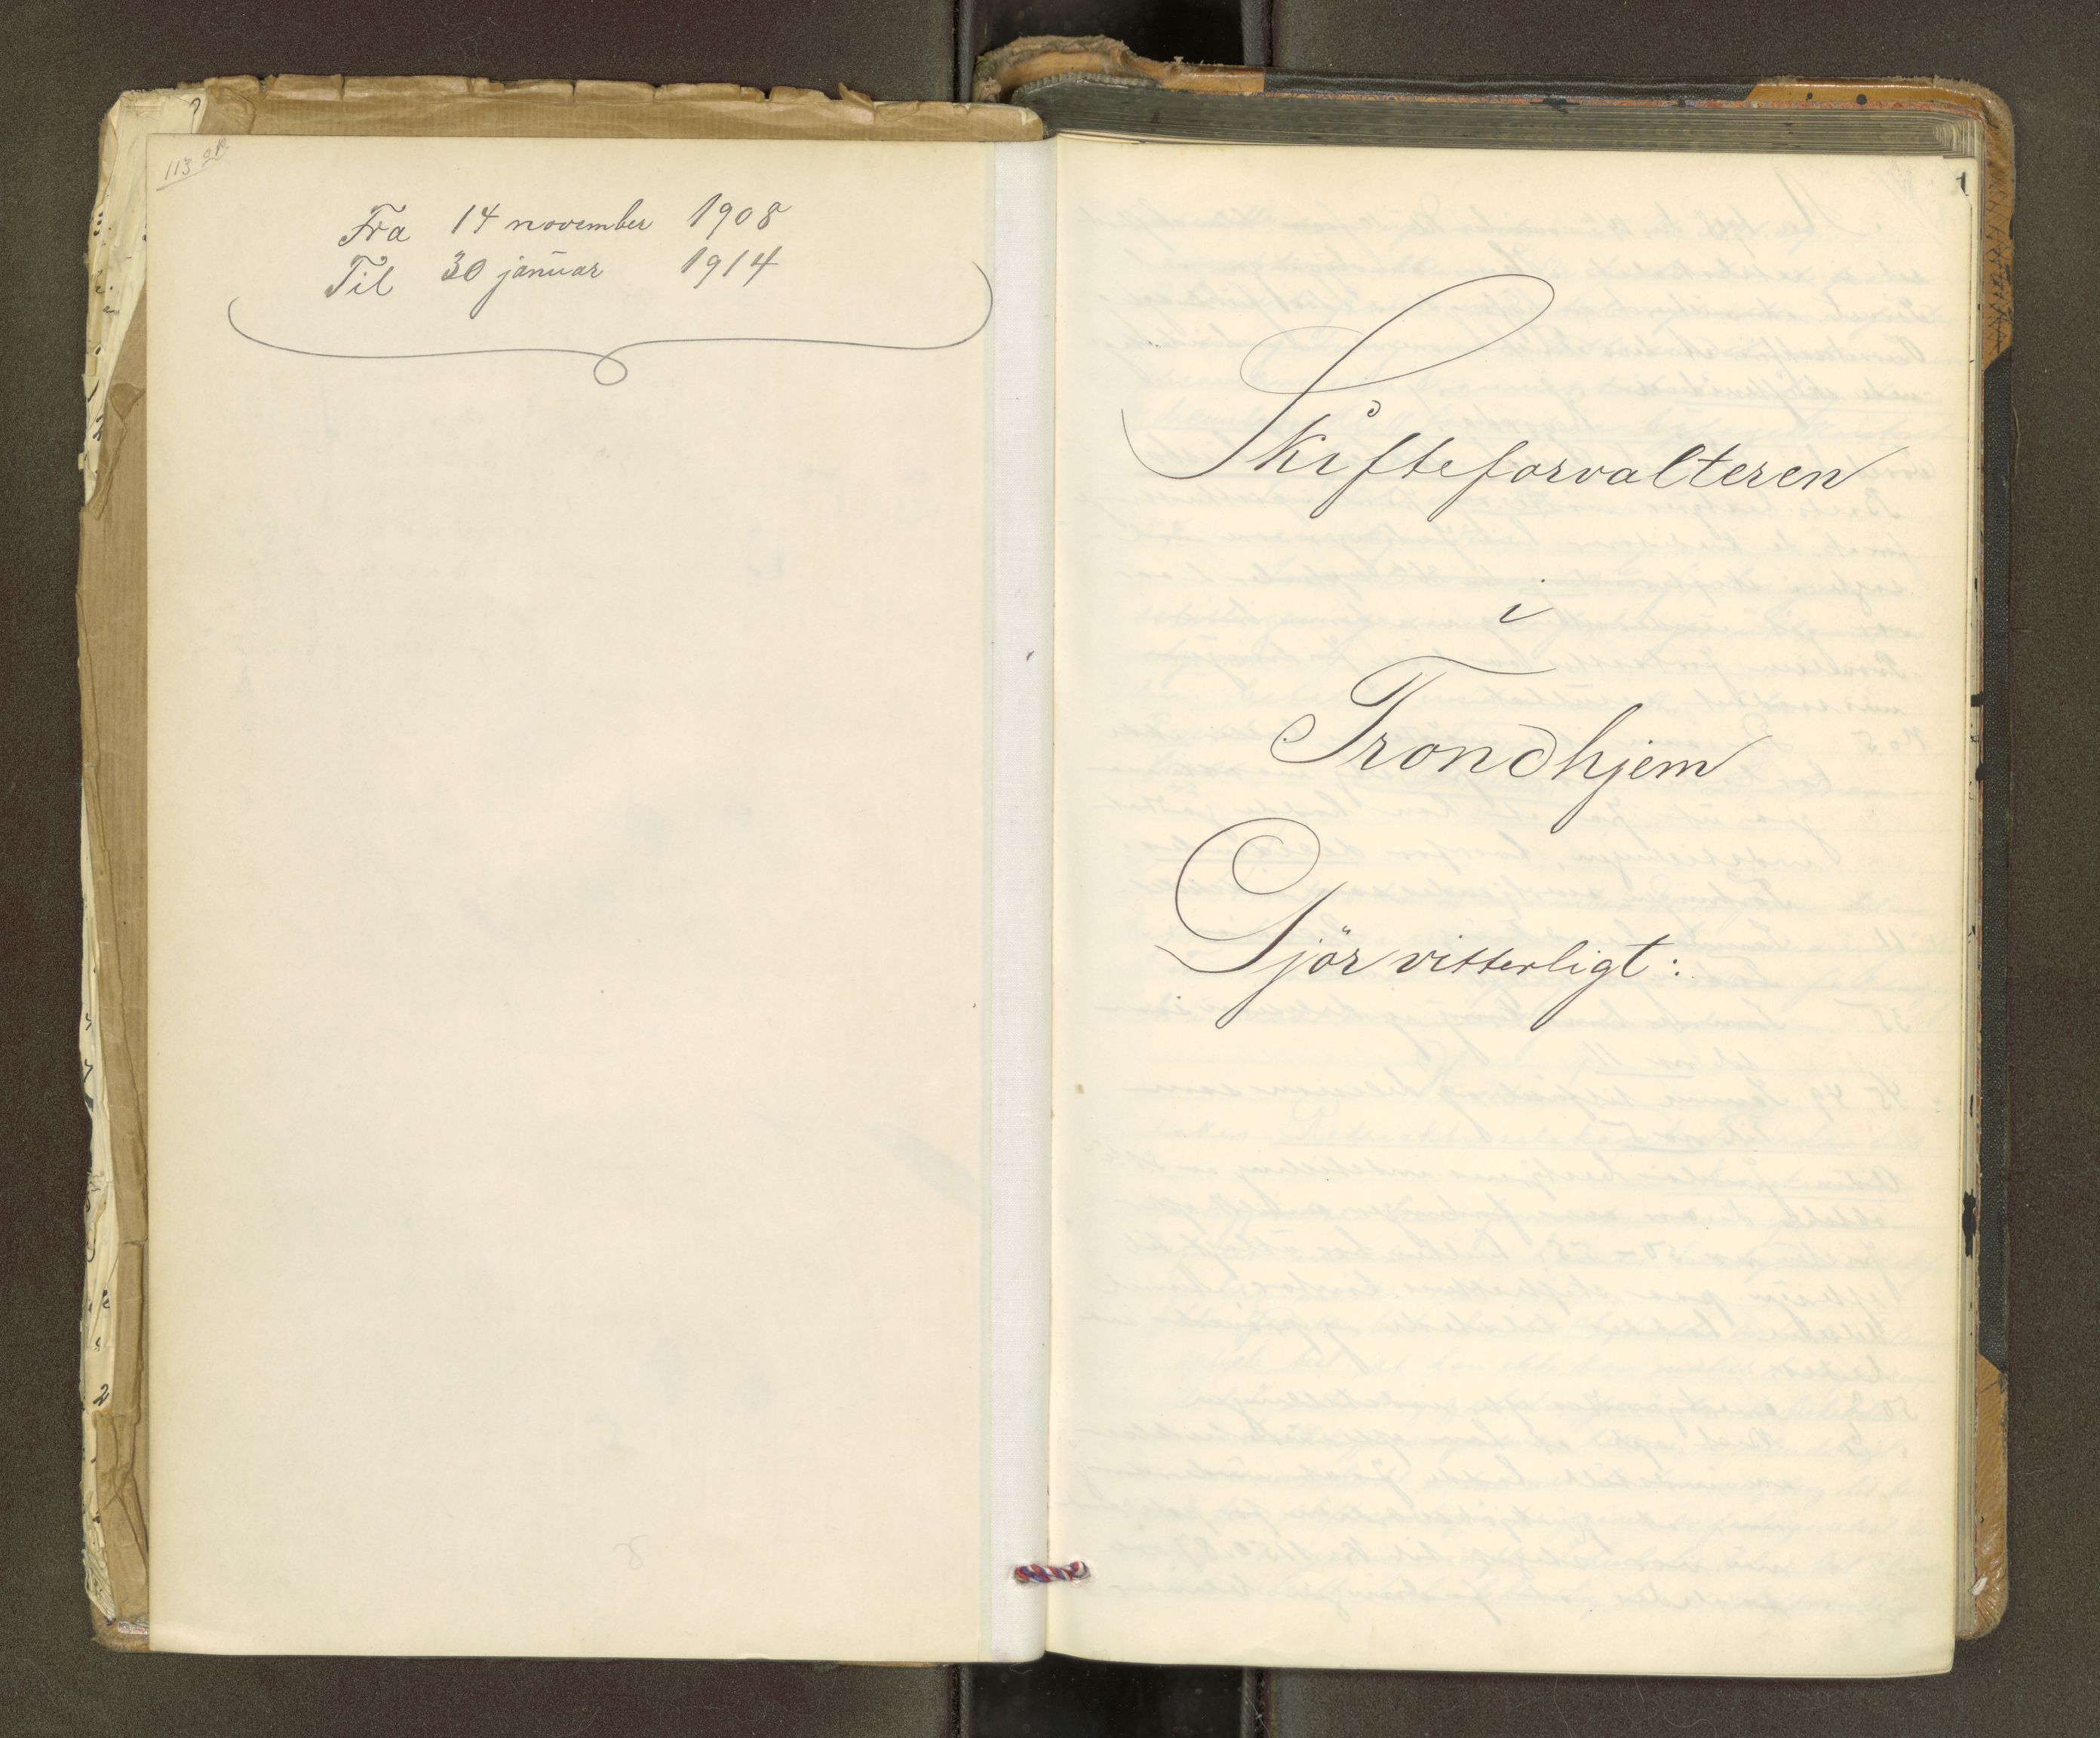 113
Fra 14 november 1908
Til 30 januar 1914
1
Skifteforvalteren
i
Trondhjem
Gjör vitterligt: